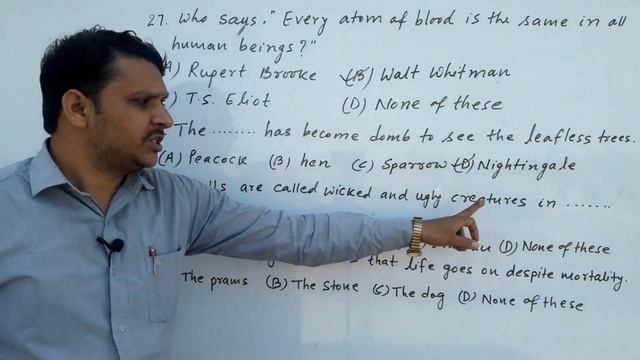 27. Who says. "Every atom of blood is the same in all
human beings?"
A) Rupert Brooke (B) Walt Whitman
) T.S. Eliot (D) None of these
The ........ has become domb to see the leafless trees.
(A) Peacock (B) hen (C) Sparrow (D) Nightingale
are called wicked and ugly creatures in .......
(D) None of these
that life goes on despite mortality.
The prams (B) The Stone (C) The dog (D) None of these